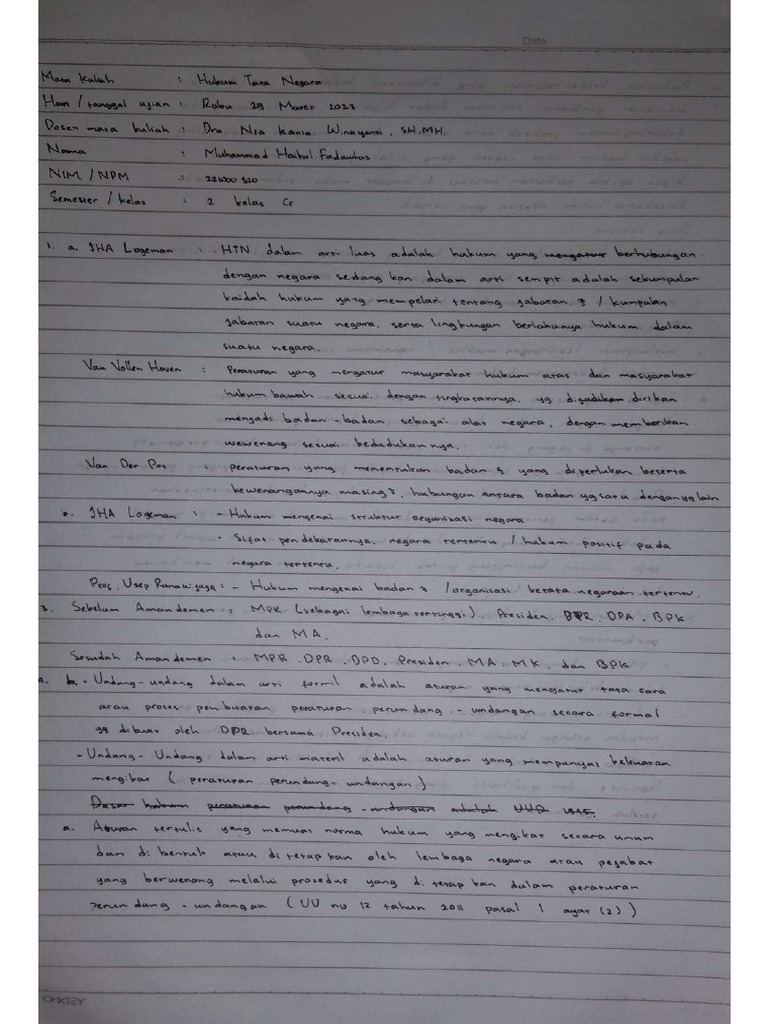 Date
Mata Kuliah : Hukum Tata Negara
Hari / tanggal ujian : Rabu 29 Maret 2023
Dosen mata kuliah : Dra Nia Kania Winayanti, SH.MH.
Nama : Muhammad Haikal Fadawkas
NIM / NPM : 221000320
Semester / kelas : 2 kelas G
1. a. JHA Logeman : HTN dalam arti luas adalah hukum yang mengatur berhubungan
dengan negara sedang kan dalam arti sempit adalah sekumpulan
kaidah hukum yang mempelari tentang jabatan 2 / kumpulan
jabatan suatu negara, serta lingkungan berlakunya hukum dalam
suatu negara.
Van Vollen Hoven : Peraturan yang mengatur masyarakat hukum atas dan masyarakat
hukum bawah sesuai dengan tingkatannya, yg dijadikan dirikan
menjadi badan-badan sebagai alat negara, dengan memberikan
wewenang sesuai kedudukannya.
Van Der Pot : peraturan yang menentukan badan2 yang diperlukan beserta
kewenangannya masing2, hubungan antara badan yg satu dengan yg lain
b. JHA Logeman : - Hukum mengenai struktur organisasi negara
- Sifat pendekatannya, negara tertentu / hukum positif pada
negara tertentu.
Prof. Usep Ranawijaya : - Hukum mengenai badan2 / organisasi / ketata negaraan tertentu.
3. Sebelum Amandemen : MPR (sebagai lembaga tertinggi), Presiden, DPR, DPA, BPK
dan MA.
Sesudah Amandemen : MPR, DPR, DPD, Presiden, MA, MK, dan BPK
b. - Undang-undang dalam arti formil adalah aturan yang mengatur tata cara
atau proses pembuatan peraturan perundang-undangan secara formal
yg dibuat oleh DPR bersama Presiden.
- Undang-Undang dalam arti materil adalah aturan yang mempunyai kekuatan
mengikat (peraturan perundang-undangan)
Dasar hukum peraturan perundang-undangan adalah UUD 1945.
a. Aturan tertulis yang memuat norma hukum yang mengikat secara umum
dan di bentuk atau di tetapkan oleh lembaga negara atau pejabat
yang berwenang melalui prosedur yang di tetapkan dalam peraturan
perundang-undangan (UU no 12 tahun 2011 pasal 1 ayat (2))